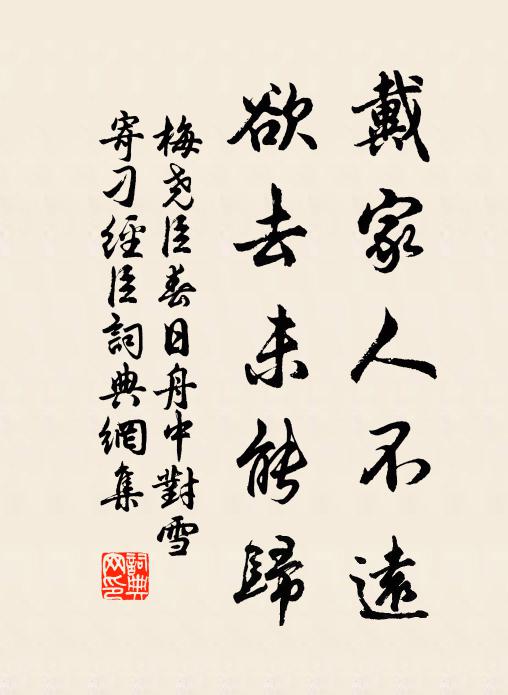 戴家人不遠
欲去未能歸
梅尧臣春日舟中對雪
寄刁經臣詞典網集
詞典
网印